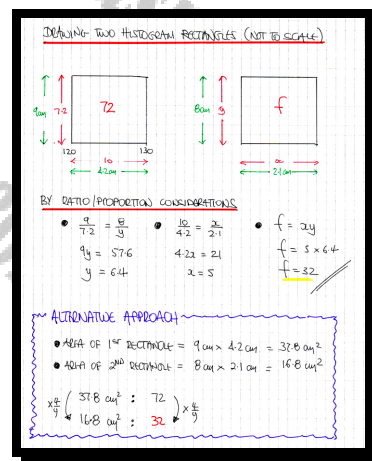 DRAWING TWO HISTOGRAM RECTANGLES (NOT TO SCALE)
9cm 7.2 72
120 130
10
4.2cm
8cm y f
x
2.1cm
BY RATIO/PROPORTION CONSIDERATIONS
• 9/7.2 = 8/y
9y = 57.6
y = 6.4
• 10/4.2 = x/2.1
4.2x = 21
x = 5
• f = xy
f = 5 × 6.4
f = 32
ALTERNATIVE APPROACH
• AREA OF 1ST RECTANGLE = 9cm × 4.2cm = 37.8 cm²
• AREA OF 2ND RECTANGLE = 8cm × 2.1cm = 16.8 cm²
×4/9 ( 37.8 cm² : 72 ) ×4/9
16.8 cm² : 32